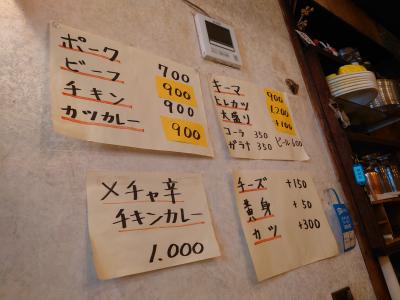 ポーク 700
ビーフ 900
チキン 900
カツカレー 900
キーマ 900
ヒレカツ 1200
大盛り +100
コーラ 350
ガラナ 350 ビール 600
メチャ辛
チキンカレー
1.000
チーズ +150
黄身 +50
カツ +300